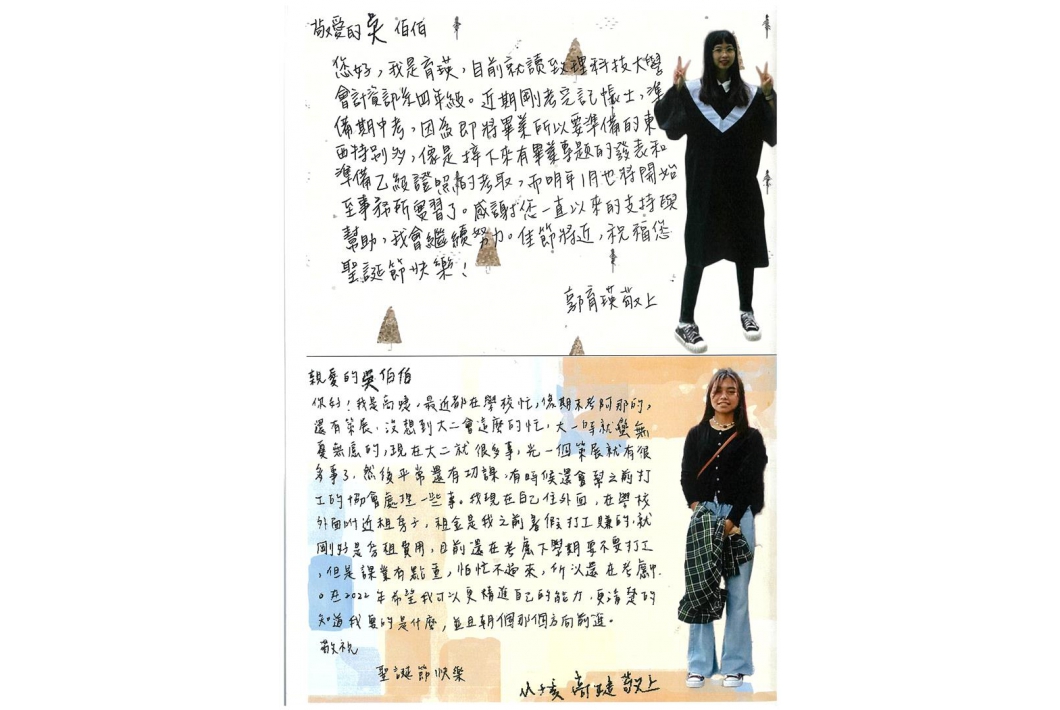 敬愛的吳伯伯
您好，我是育瑛，目前就讀致理科技大學
會計資訊系四年級。近期剛考完記帳士，準
備期中考，因為即將畢業所以要準備的東
西特別多，像是接下來有畢業專題的發表和
準備乙級證照的考取，而明年1月也將開始
至事務所實習了。感謝您一直以來的支持與
幫助，我會繼續努力。佳節將近，祝福您
聖誕節快樂！
郭育瑛敬上
親愛的吳伯伯
你好！我是高 ，最近都在學校忙，像期末考阿那的，
還有策展，沒想到大二會這麼的忙，大一時就蠻無
憂無慮的，現在大二就很多事，光一個策展就有很
多事了，然後平常還有功課，有時候還會幫之前打
工的協會處理一些事。我現在自己住外面，在學校
外面附近租房子，租金是我之前暑假打工賺的，就
剛好是房租費用，目前還在考慮下學期要不要打工
，但是課業有點重，怕忙不過來，所以還在考慮中
。在2022年希望我可以更精進自己的能力，更清楚的
知道我要的是什麼，並且朝個那個方向前進。
敬祝
聖誕節快樂
高 敬上